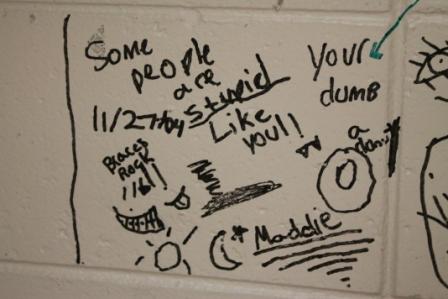 Some
people
are
Stupid
Like
you!!
11/27/04
Your
dumb
a
donut
Braces
Rock
!!!
Maddie